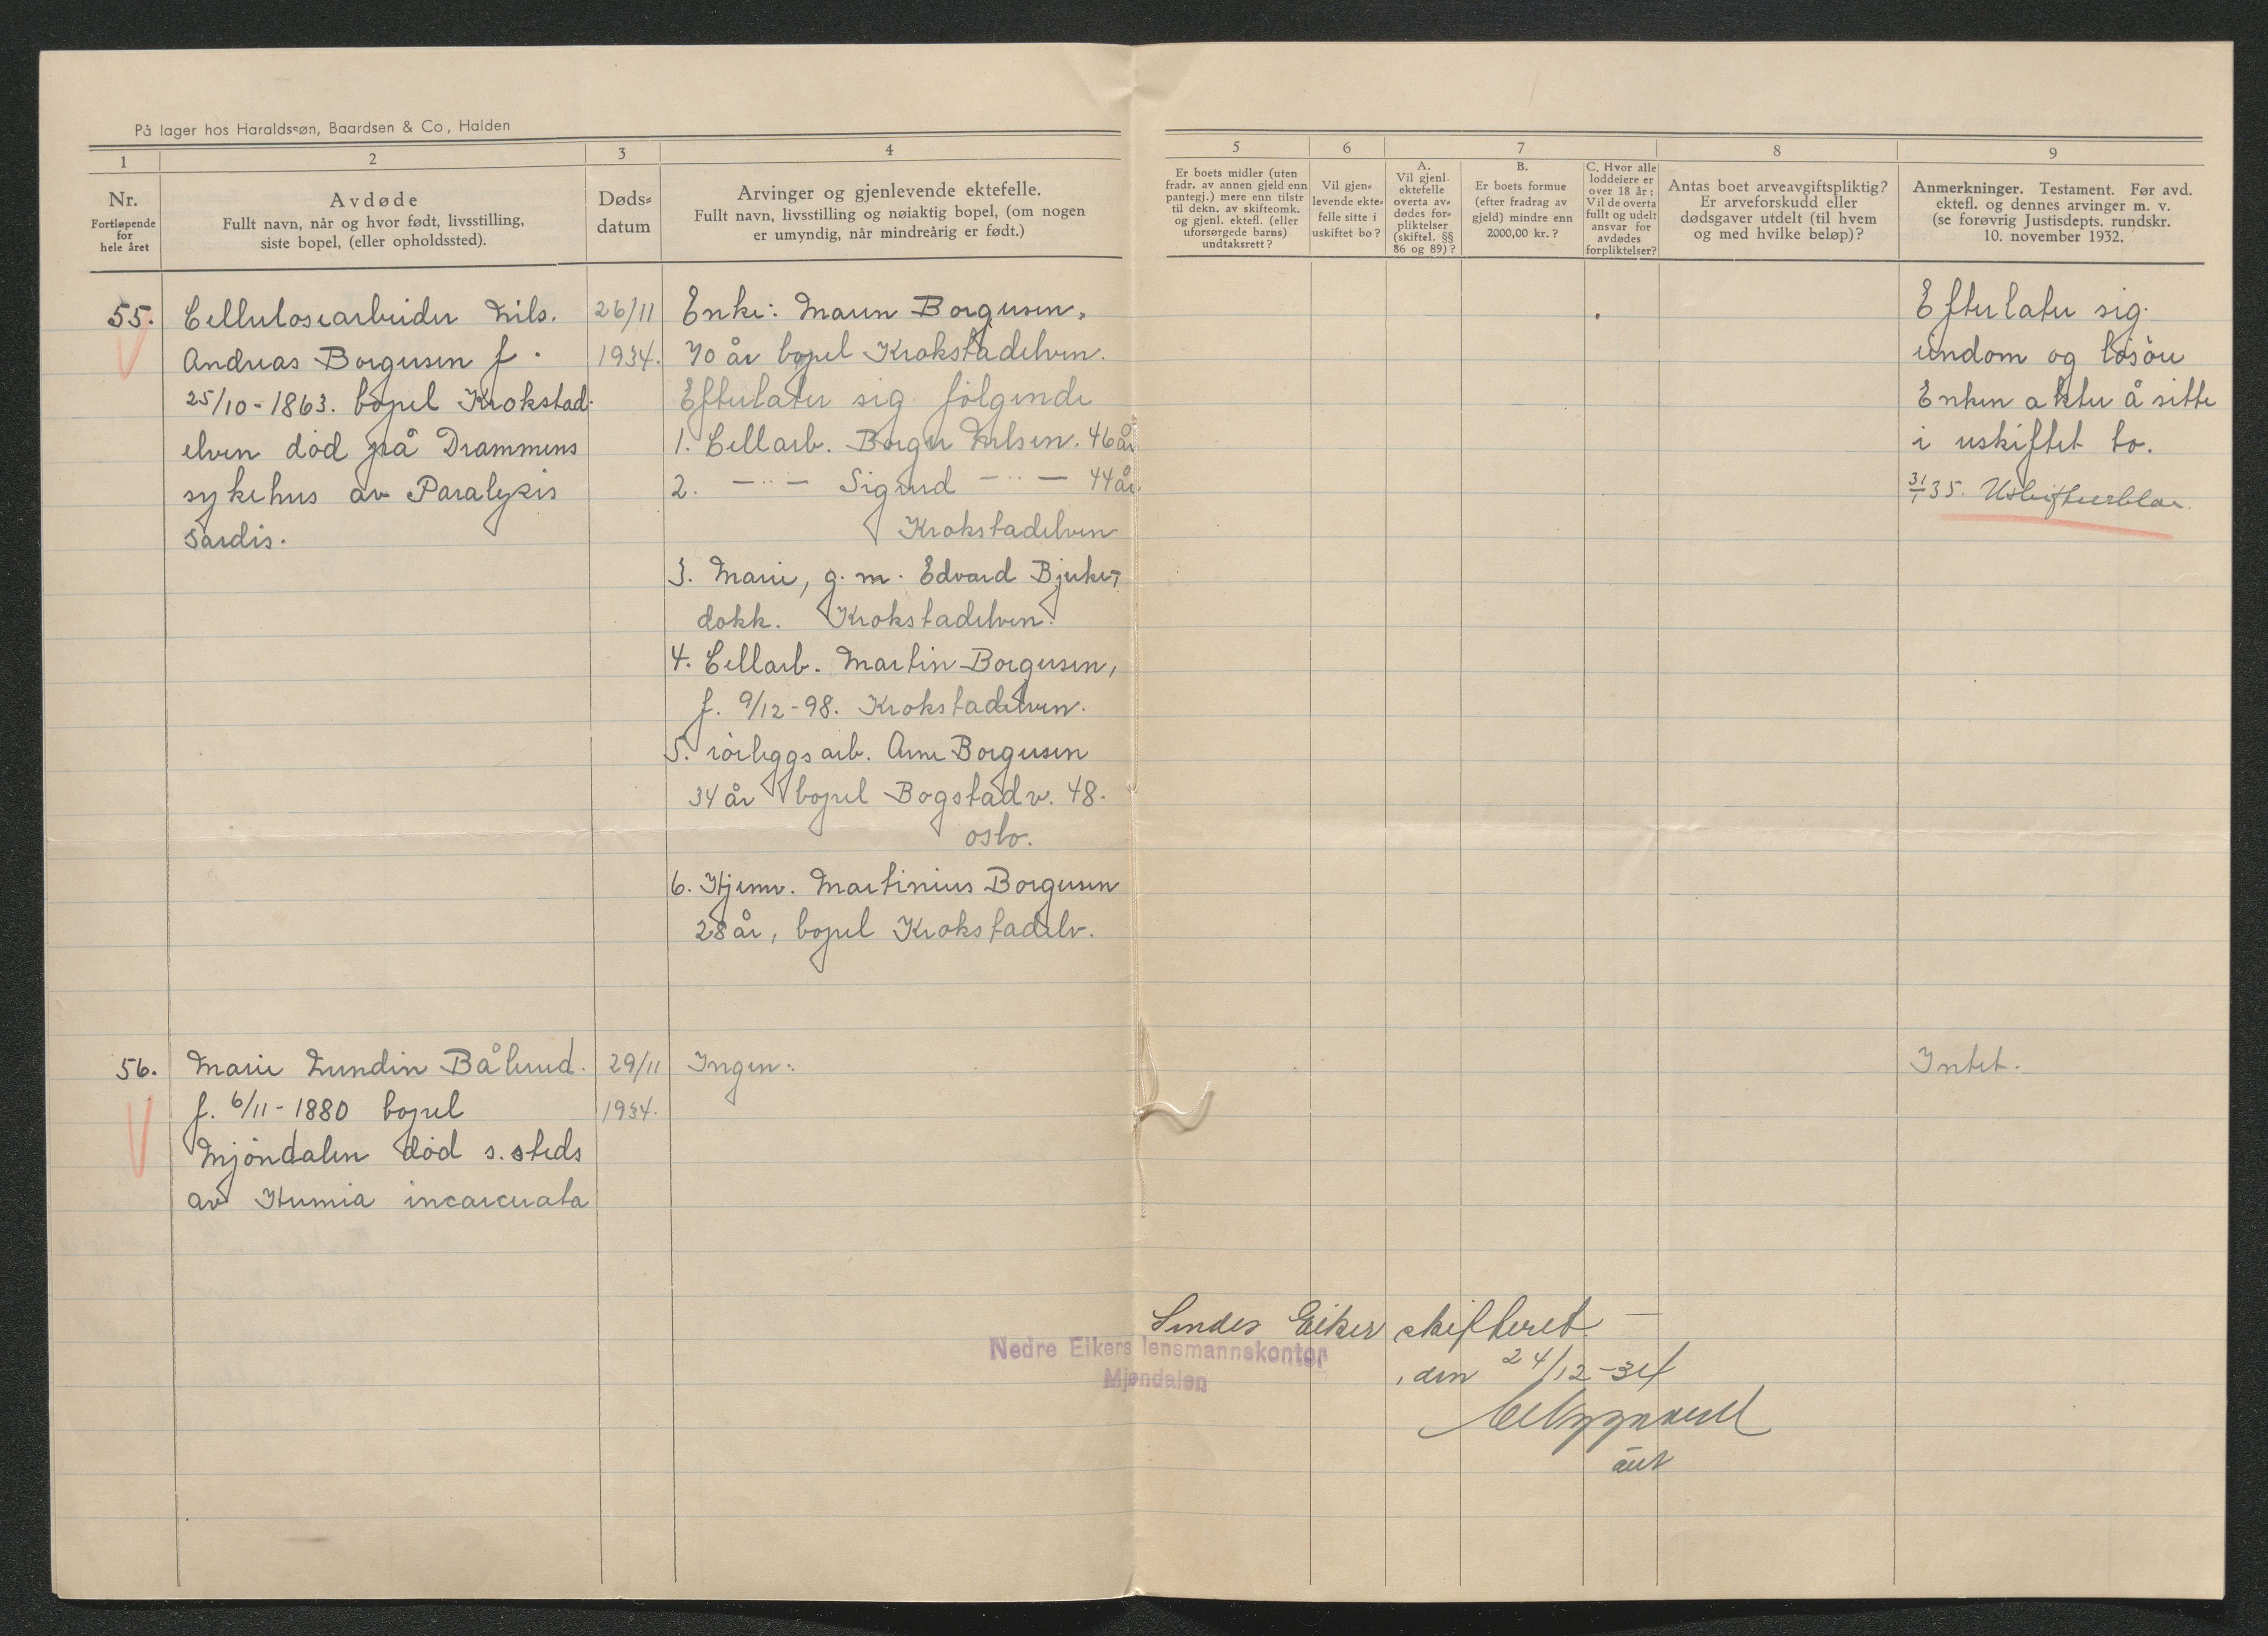 På lager hos Haraldssøn, Baardsen & Co, Halden
1
2
3
4
5
6
7
8
9
Nr.
Fortløpende
for
hele året
Avdøde
Fullt navn, når og hvor født, livsstilling,
siste bopel, (eller opholdssted).
Døds-
datum
Arvinger og gjenlevende ektefelle.
Fullt navn, livsstilling og nøiaktig bopel, (om nogen
er umyndig, når mindreårig er født.)
Er boets midler (uten
fradr. av annen gjeld enn
pantegj.) mere enn tilstr
til dekn. av skifteomk.
og gjenl. ektefl. (eller
uforsørgede barns)
undtaksrett?
Vil gjen-
levende ekte-
felle sitte i
uskiftet bo?
A.
Vil gjenl.
ektefelle
overta av-
dødes for-
pliktelser
(skiftel. §§
86 og 89)?
B.
Er boets formue
(efter fradrag av
gjeld) mindre enn
2000,00 kr.?
C. Hvor alle
loddeiere er
over 18 år:
Vil de overta
fullt og udelt
ansvar for
avdødes
forpliktelser?
Antas boet arveavgiftspliktig?
Er arveforskudd eller
dødsgaver utdelt (til hvem
og med hvilke beløp)?
Anmerkninger. Testament. Før avd.
ektefl. og dennes arvinger m. v.
(se forøvrig Justisdepts. rundskr.
10. november 1932.
55.
Cellulosearbeider Nils.
Andreas Borgersen f.
25/10-1863. bopel Krokstad-
elven død på Drammens
sykehus av Paralysis
26/11
1934.
Enke: Maren Borgersen,
70 år bopel Krokstadelven.
Efterlater sig følgende
1. Cellarb. Borger Nilsen. 46 år
2. — ·· — Sigurd — ·· — 44 år.
Krokstadelven
3. Marie, g. m. Edvard Bjerke,
dokk. Krokstadelven.
4. Cellarb. Martin Borgersen,
f. 9/12-98. Krokstadelven.
5. rørleggsarb. Arne Borgersen
34 år bopel Bogstadv. 48.
Oslo.
6. Hjemv. Martinius Borgersen
28 år, bopel Krokstadelv.
Efterlater sig
eiendom og løsøre
Enken akter å sitte
i uskiftet bo.
31/1 35.
56.
Marie Lundin Bålerud.
f. 6/11-1880 bopel
Mjøndalen død s. steds
av Hernia incarcerata
29/11
1934.
Ingen.
Intet.
Sendes Eiker skifteret —
, den 24/12-34
Nedre Eikers lensmannskontor
Mjøndalen